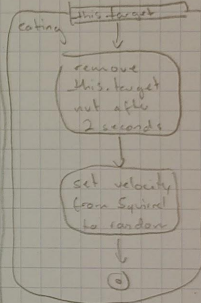 this.target
eating
remove
this.target
nut after
2 seconds
set velocity
from Squirrel
to random